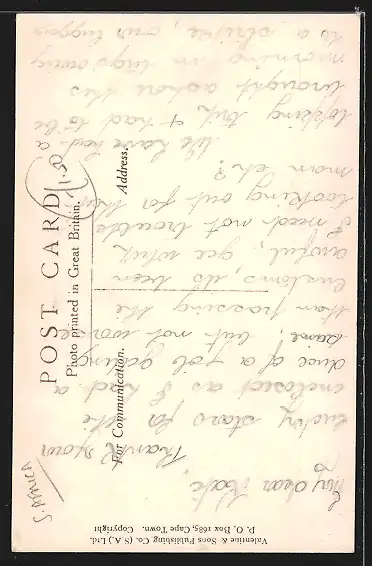 POST CARD
Photo printed in Great Britain.
For Communication.
Address.
1.50
S. AFRICA
Valentine & Sons Publishing Co. (S.A.) Ltd.
P. O. Box 1685, Cape Town. Copyright
My dear
Thank your
lucky stars for the
enclosed as I had a
duce of a job getting
same, but not worse
than passing the
customs, its been
awful, gee whiz
I need not trouble
looking out for
man eh?
We have had a
topping trip & had to be
brought ashore this
morning in tugs owing
to a strike, our luggage